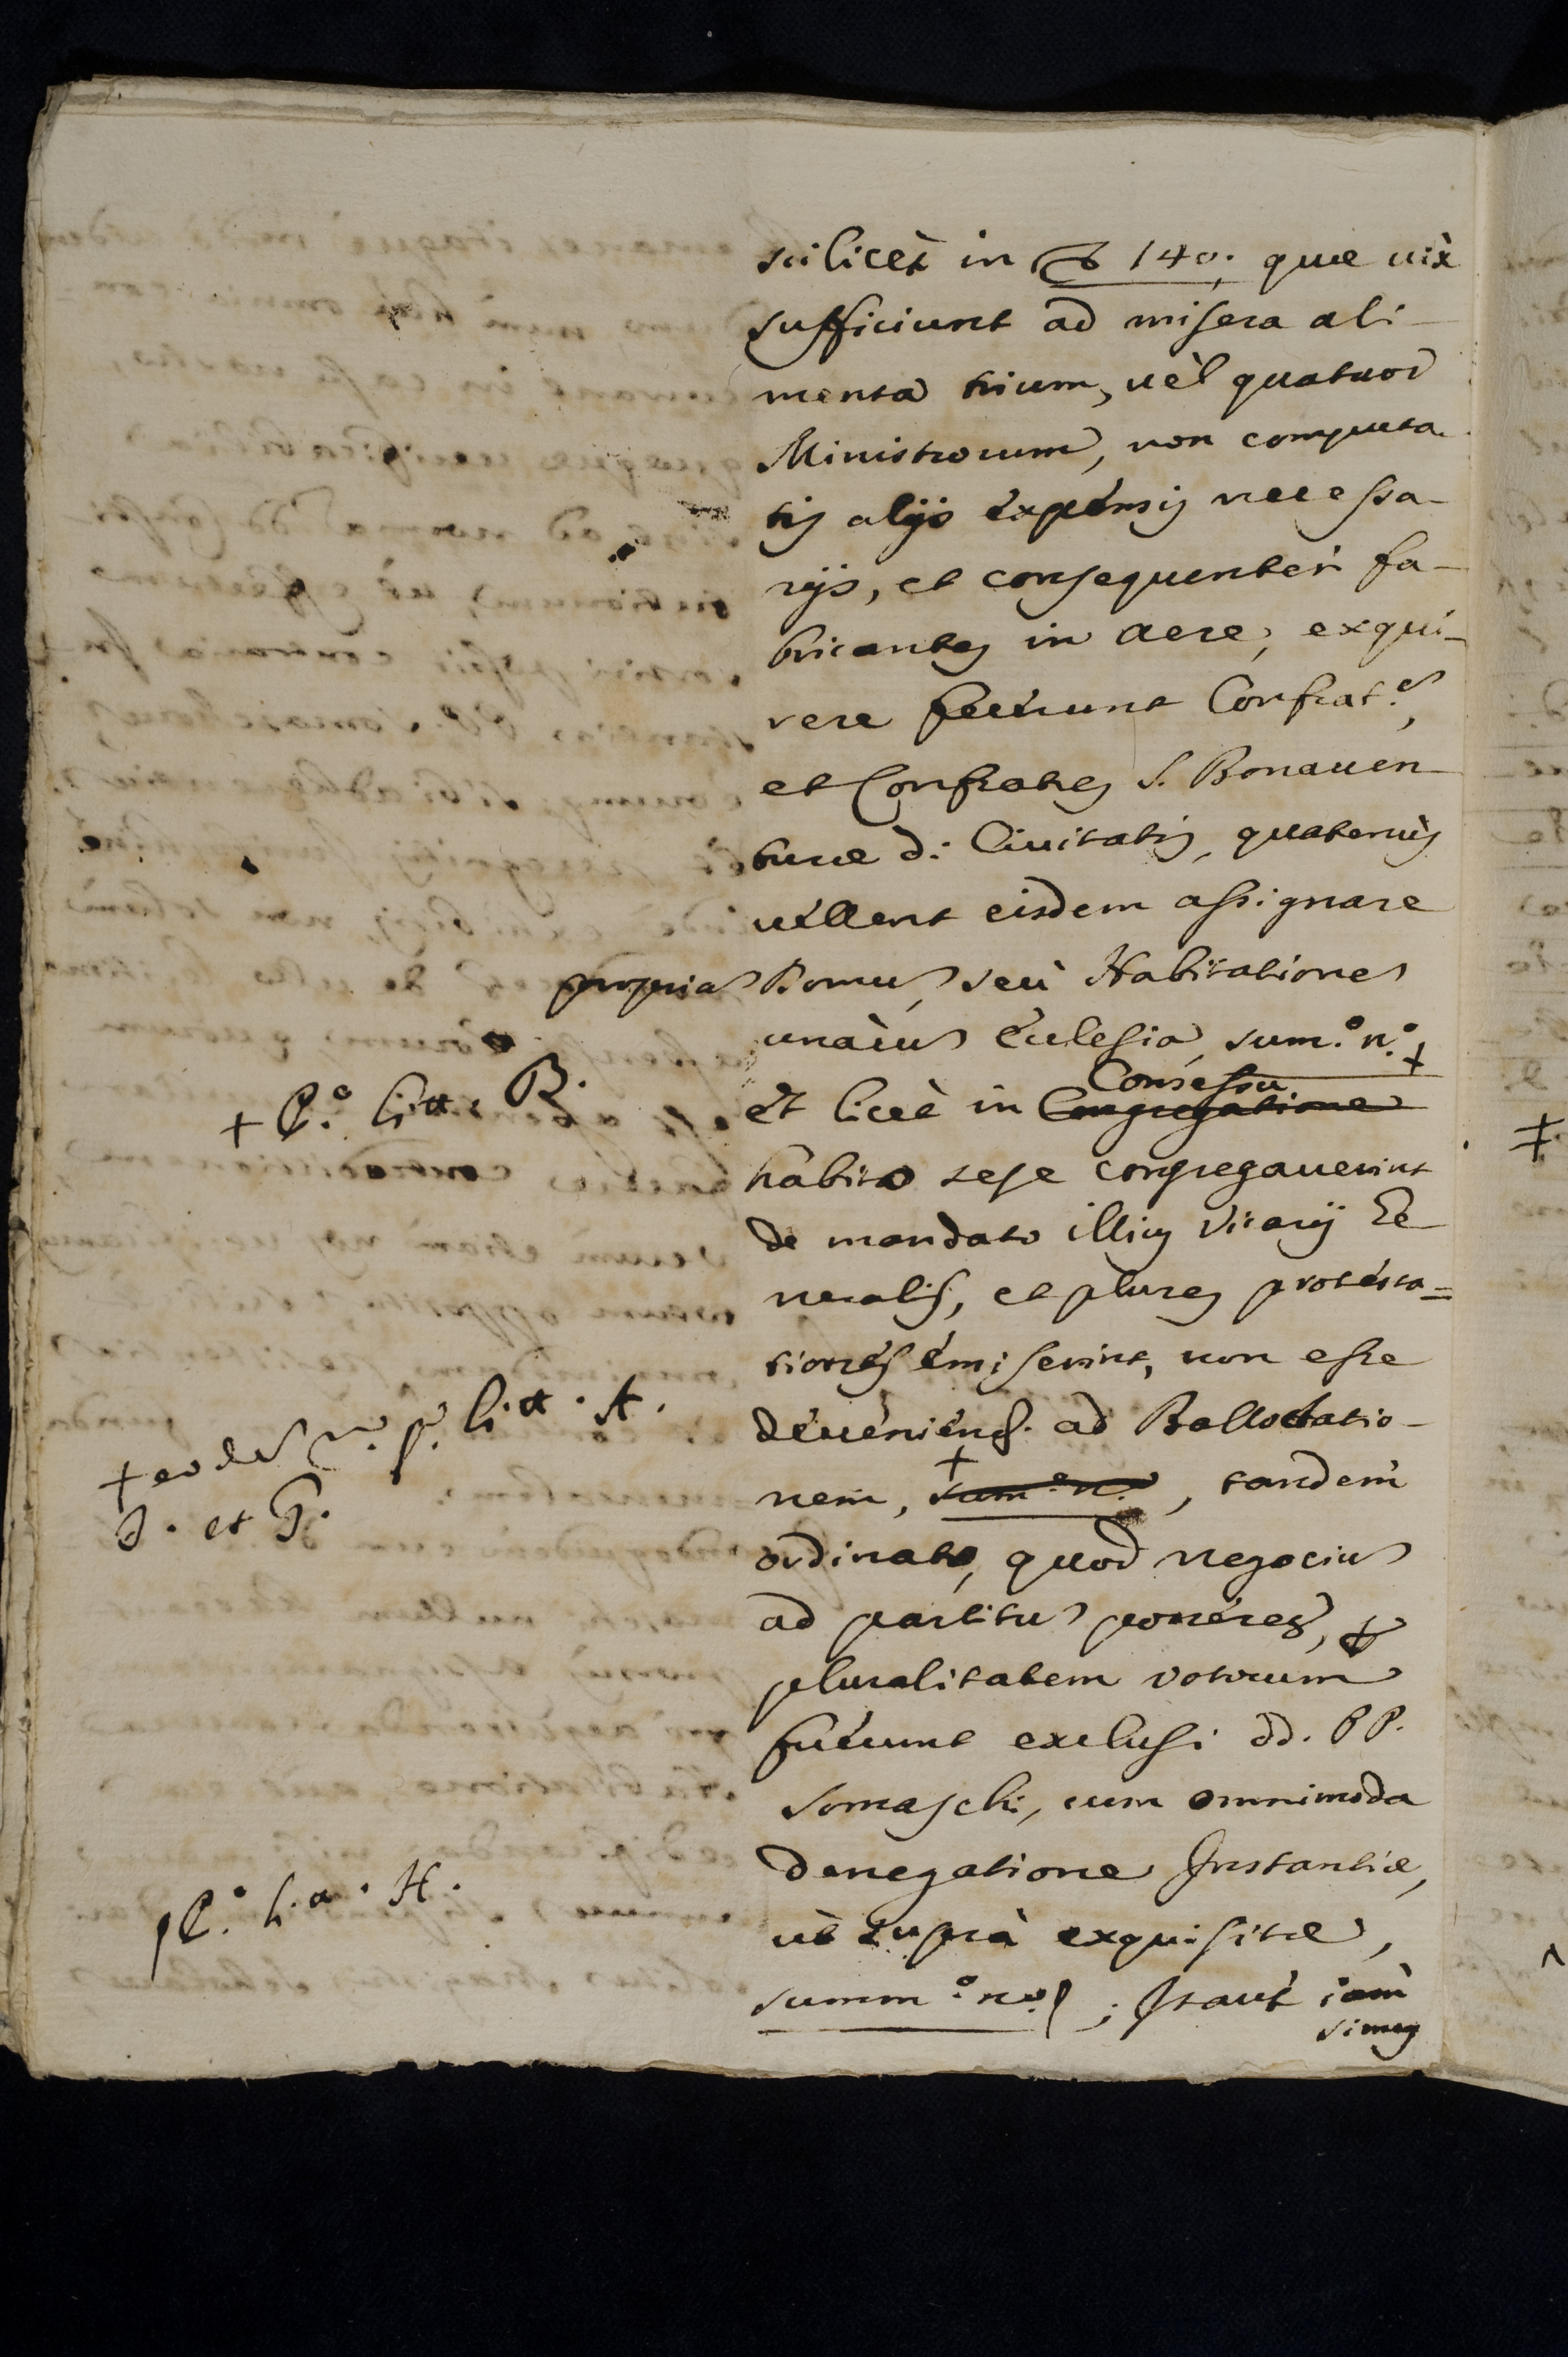 scilicèt in 140; quæ uix
sufficiunt ad misera ali-
menta trium, uèl quatuor
Ministrorum, non computa-
tis alijs expensis necessa-
rijs, et consequenter fa-
bricantes in aere, exqui-
rere fecerunt Confrat.es,
et Confratres S. Bonauen-
turæ d: Ciuitatis, quatenùs
uellent eisdem assignare
propria Domu, seù Habitatione
unà cu Ecclesia, sum.º n.º +
+ P.º litt. B.
Consessu
Et licèt in Congregatione
habito sese congregauerint
de mandato illius Vicarij Ge-
neralis, et plures protesta=
tiones emiserint, non esse
+ eod. n. p. litt. A.
J. et G.
deueniend. ad Ballottatio-
nem, + sum.º n.º, tandem
ordinato, quod negociu
ad partitu poneret,
pluralitatem votorum
fuerunt exclusi dd. PP.
Somaschi, cum omnimoda
denegatione Instantiæ,
P.º litt. H.
ùt suprà exquisitæ,
summ.º n.º; Itaut iam
simus